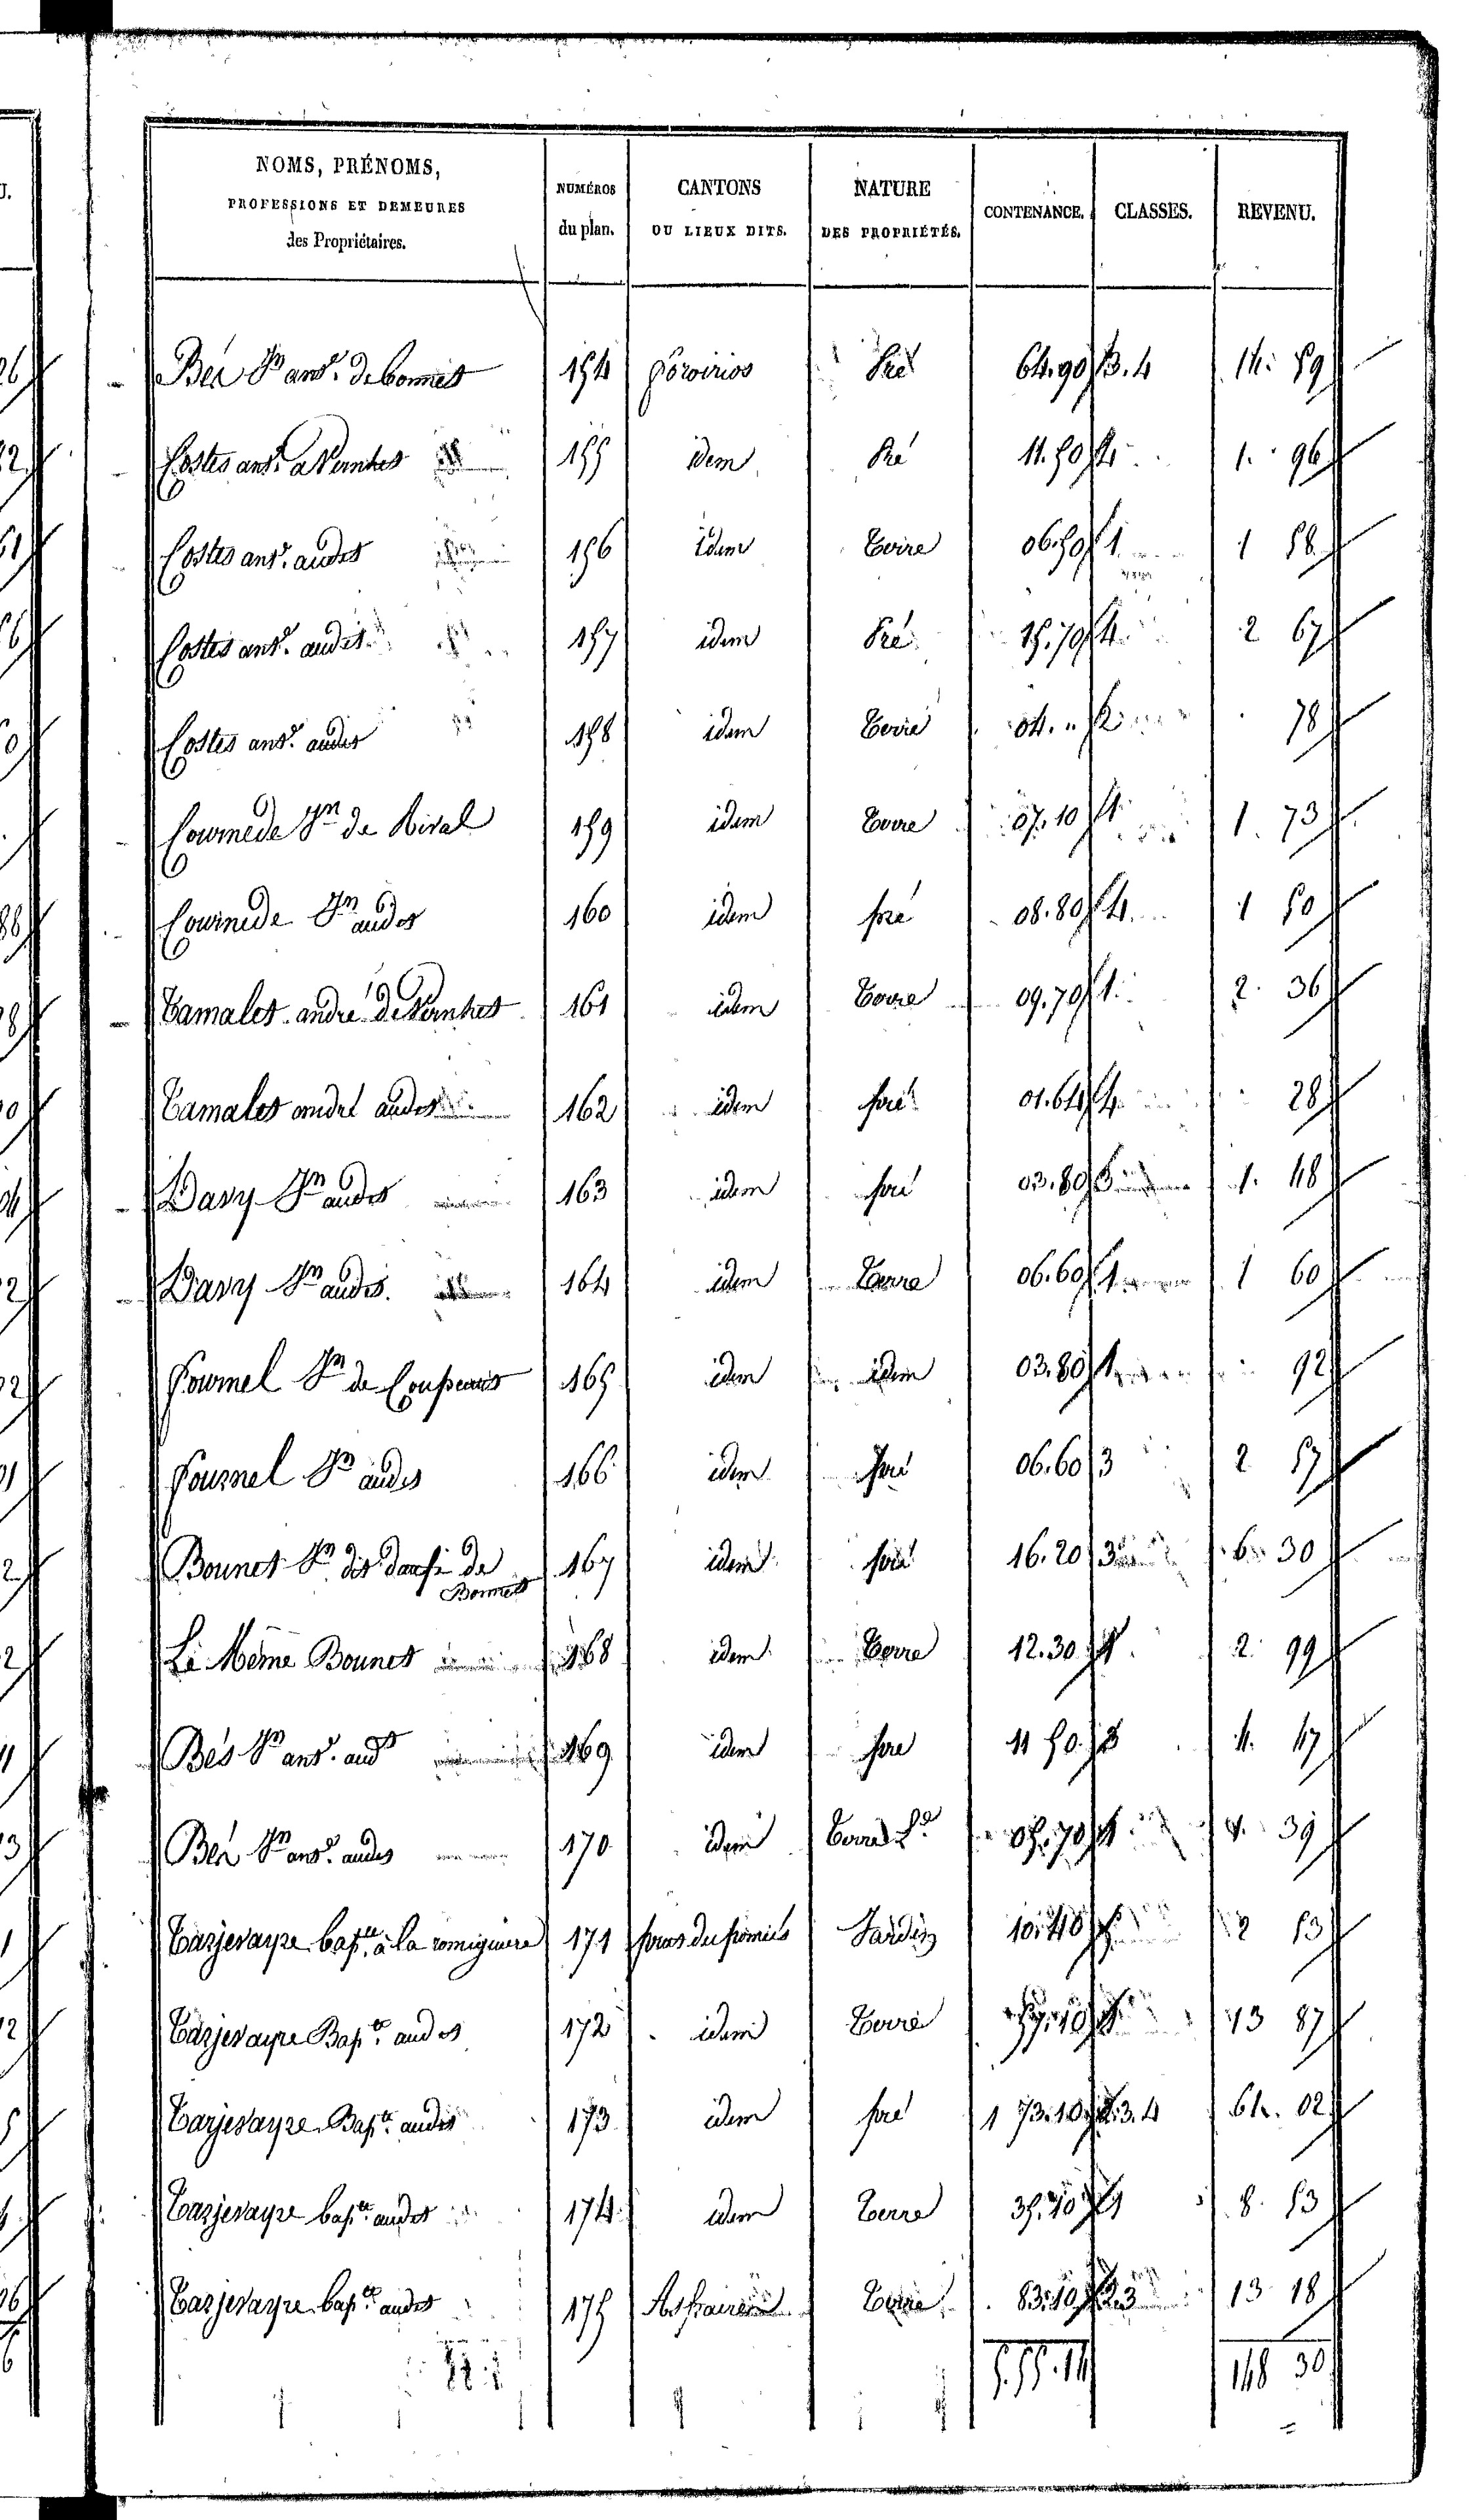 NOMS, PRÉNOMS,
PROFESSIONS ET DEMEURES
des Propriétaires.
NUMÉROS
du plan.
CANTONS
OU LIEUX DITS.
NATURE
DES PROPRIÉTÉS.
CONTENANCE.
CLASSES.
REVENU.
154 Pré 64.90 3.4 14. 59
Costes ant. 155 idem Pré 11.50 4 1. 96
Costes ant. audit 156 idem Terre 06.50 1 1 58
Costes ant. audit 157 idem Pré 15.70 4 2 67
Costes ant. audit 158 idem Terre 04. " 2 78
Jn de Rival 159 idem Terre 07.10 1 1. 73
Jn audit 160 idem pré 08.80 4 1 50
Tamalet andré de 161 idem Terre 09.70 1 2. 36
Tamalet andré audit 162 idem pré 01.64 4 28
Davy Jn audit 163 idem pré 03.80 1. 48
Davy Jn audit 164 idem Terre 06.60 1 1 60
Fournel Jn de 165 idem idem 03.80 1 92
Fournel Jn audit 166 idem pré 06.60 3 2 57
Bounet Jn dit de 167 idem pré 16.20 3 6 30
Bonnet
Le Même Bounet 168 idem Terre 12.30 1 2. 99
Bés Jn ant. audt 169 idem pré 11 50 3 4. 47
Bés Jn ant. audit 170 idem Terre 05.70 1 1. 39
Tarjevayre bapte à la romiguiere 171 Jardin 10.40 2 53
Tarjevayre Bapte audit 172 idem Terre 57.10 1 13 87
Tarjevayre Bapte audit 173 idem pré 1 73.10 2.3.4 64. 02
Tarjevayre bapte audit 174 idem Terre 35.10 1 8. 53
Tarjevayre bapte audit 175 Terre 83.10 2.3 13 18
5.55.14 148 30